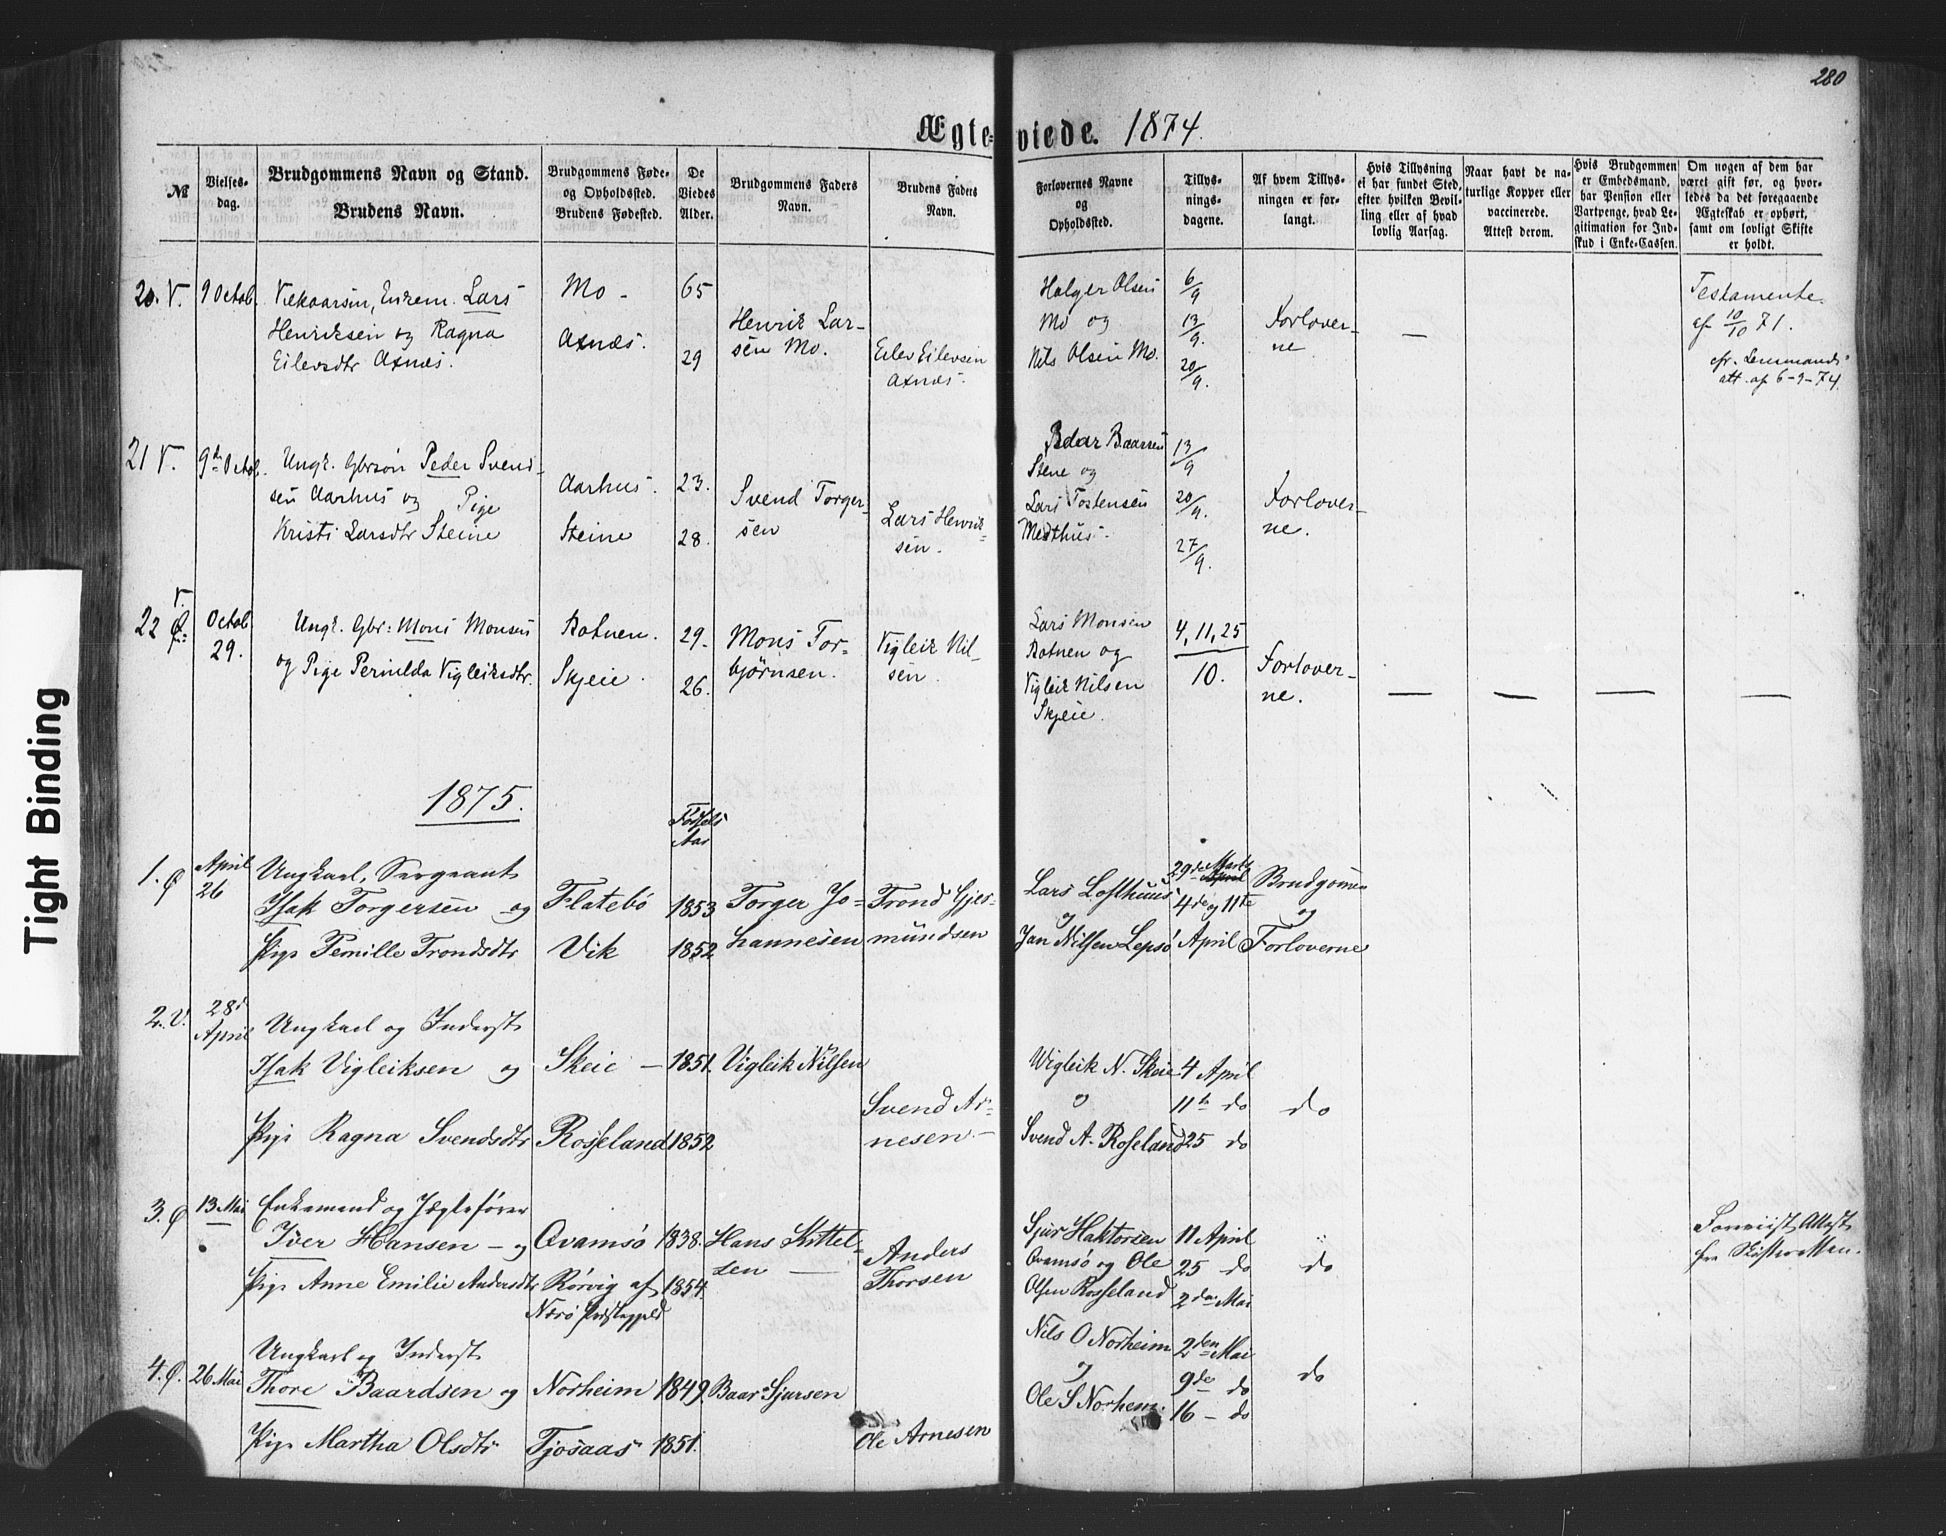 280
Ægteviede. 1874.
№
Vielses-
dag.
Brudgommens Navn og Stand.
Brudens Navn.
Brudgommens Føde-
og Opholdssted.
Brudens Fødested.
De
Viedes
Alder.
Brudgommens Faders
Navn.
Brudens Faders
Navn.
Forlovernes Navne
og
Opholdssted.
Tillys-
nings-
dagene.
Af hvem Tillys-
ningen er for-
langt.
Hvis Tillysning
ei har fundet Sted,
efter hvilken Bevil-
ling eller af hvad
lovlig Aarsag.
Naar havt de na-
turlige Kopper eller
vaccinerede.
Attest derom.
Hvis Brudgommen
er Embedsmand,
har Pension eller
Vartpenge, hvad Le-
gitimation for Ind-
skud i Enke-Cassen.
Om nogen af dem har
været gift før, og hvor-
ledes da det foregaaende
Ægteskab er ophørt,
samt om lovligt Skifte
er holdt.
20. V.
9 Octob.
Enkem. Lars
Henriksen og Ragna
Eilevsdtr Axnæs.
Mo -
Axnæs.
65
29
Henrik Lar-
sen Mo.
Eilev Eilevsen
Axnæs.
Holger Olsen
Mo og
Nils Olsen Mo.
6/9
13/9.
20/9.
Forlover-
ne
—
Testamente
af 10/10 71.
cfr. Lensmands
att. af 6-9-74.
21 V.
9de Octob.
Ungk. Gbrsøn Peder Svend-
sen Aarhus og Pige
Kristi Larsdtr Steine
Aarhus.
Steine
23.
28.
Svend Torger-
sen
Lars Henrik-
sen.
Baarsen
Stene og
Lars Tostensen
Medthus.
13/9
20/9.
27/9.
Forlover-
ne.
22 V. Ø:
Octob
29.
Ungk. Gbr: Mons Monsen
og Pige Pernilda Vigleiksdtr.
Botnen.
Skjeie.
29.
26.
Mons Tor-
bjørnsen.
Vigleik Nil-
sen.
Lars Monsen
Botnen og
Vigleik Nilsen
Skjeie.
4, 11, 25
10.
Forlover-
ne.
— — — —
1875.
Fødsels
Aar
1. Ø
April
26
Ungkarl, Sergeant
Isak Torgersen og
Pige Pernille Trondsdtr
Flatebø
Vik
1853
1852
Torger Jo-
hannesen
Trond Gjer-
mundsen
Lars Lofthuus
og
Jan Nilsen Lepsø
29de Marts
April
4de og 11te
April
Brudgomen
og
Forloverne
2. V.
28d
April
Ungkarl og Inderst
Isak Vigleiksen og
Pige Ragna Svendsdtr
Skeie —
Rosseland
1851.
1852
Vigleik Nilsen
Svend Ar-
nesen. -
Wigleik N. Skeie
og
Svend A. Rosseland
4 April
11te do
25 do
do
3. Ø
13 Mai
Enkemand og Jægtefører
Iver Hansen - og
Pige Anne Emilie Andersdtr
Qvamsø
Rørvig af
Nærø Præstegjeld
1838.
1854.
Hans Kittel-
sen —
Anders
Thorsen
Sjur Haktorsen
Qvamsø og Ole
Olsen Rosseland
11 April
25 do
2den Mai
do
Foreviist Attest
fra Skifteretten.
4. Ø.
26 Mai
Ungkarl og Inderst
Thore Baardsen og
Pige Martha Olsdtr
Norheim
Tjosaas
1849.
1851.
Baar Sjursen
Ole Arnesen
Nils O Norheim
og
Ole S Norheim.
2den Mai
9de do
16 - do
do
Tight Binding